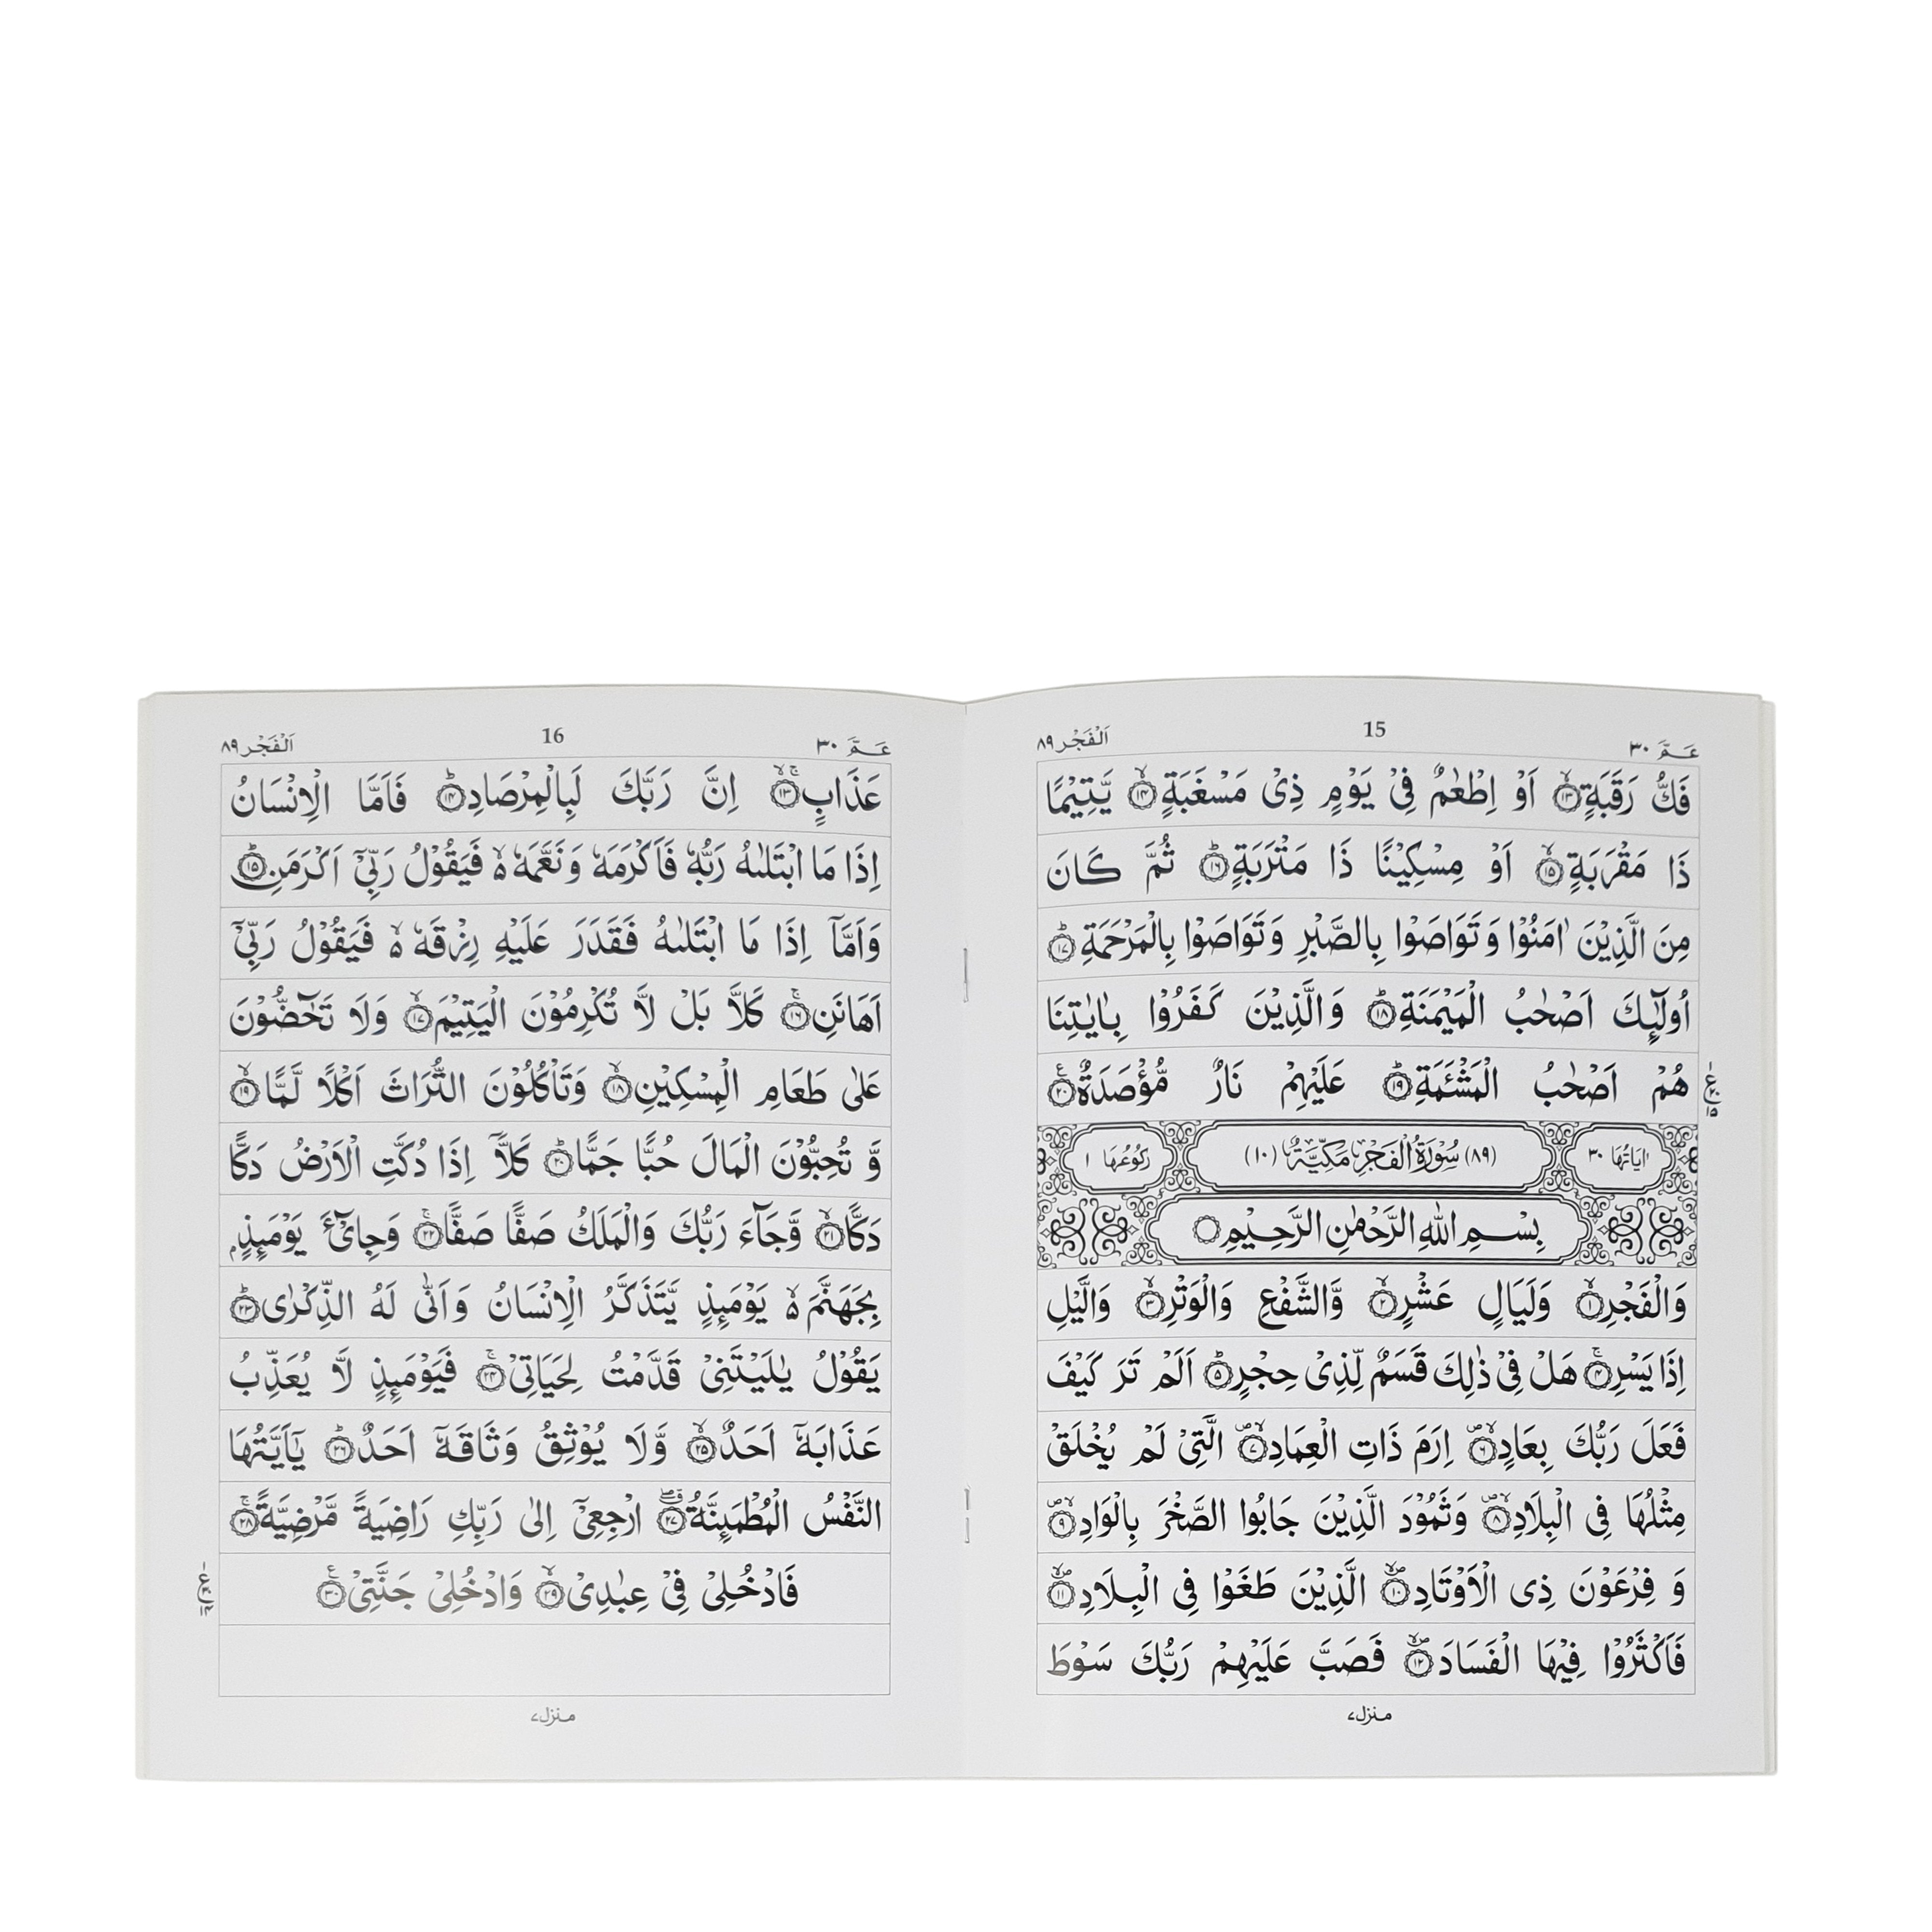 عَـمَّ ٣٠
15
اَلْفَجْر ٨٩
فَكُّ رَقَبَةٍ ۙ‏﴿١٣﴾ اَوْ اِطْعٰمٌ فِیْ یَوْمٍ ذِیْ مَسْغَبَةٍ ۙ‏﴿١٤﴾ یَّتِیْمًا
ذَا مَقْرَبَةٍ ۙ‏﴿١٥﴾ اَوْ مِسْكِیْنًا ذَا مَتْرَبَةٍ ؕ‏﴿١٦﴾ ثُمَّ كَانَ
مِنَ الَّذِیْنَ اٰمَنُوْا وَ تَوَاصَوْا بِالصَّبْرِ وَ تَوَاصَوْا بِالْمَرْحَمَةِ ؕ‏﴿١٧﴾
اُولٰٓئِكَ اَصْحٰبُ الْمَیْمَنَةِ ؕ‏﴿١٨﴾ وَ الَّذِیْنَ كَفَرُوْا بِاٰیٰتِنَا
هُمْ اَصْحٰبُ الْمَشْـَٔمَةِ ؕ‏﴿١٩﴾ عَلَیْهِمْ نَارٌ مُّؤْصَدَةٌ ۠‏﴿٢٠﴾
اٰیَاتُهَا ٣٠ (٨٩) سُوْرَةُ الْفَجْرِ مَكِّیَّةٌ (١٠) رُكُوْعُهَا ١
بِسْمِ اللّٰهِ الرَّحْمٰنِ الرَّحِیْمِ
وَالْفَجْرِ ۙ‏﴿١﴾ وَلَیَالٍ عَشْرٍ ۙ‏﴿٢﴾ وَّالشَّفْعِ وَالْوَتْرِ ۙ‏﴿٣﴾ وَالَّیْلِ
اِذَا یَسْرِ ۚ‏﴿٤﴾ هَلْ فِیْ ذٰلِكَ قَسَمٌ لِّذِیْ حِجْرٍ ؕ‏﴿٥﴾ اَلَمْ تَرَ كَیْفَ
فَعَلَ رَبُّكَ بِعَادٍ ۪ۙ‏﴿٦﴾ اِرَمَ ذَاتِ الْعِمَادِ ۪ۙ‏﴿٧﴾ الَّتِیْ لَمْ یُخْلَقْ
مِثْلُهَا فِی الْبِلَادِ ۪ۙ‏﴿٨﴾ وَثَمُوْدَ الَّذِیْنَ جَابُوا الصَّخْرَ بِالْوَادِ ۪ۙ‏﴿٩﴾
وَ فِرْعَوْنَ ذِی الْاَوْتَادِ ۪ۙ‏﴿١٠﴾ الَّذِیْنَ طَغَوْا فِی الْبِلَادِ ۪ۙ‏﴿١١﴾
فَاَكْثَرُوْا فِیْهَا الْفَسَادَ ۪ۙ‏﴿١٢﴾ فَصَبَّ عَلَیْهِمْ رَبُّكَ سَوْطَ
منزل٧
عَـمَّ ٣٠
16
اَلْفَجْر ٨٩
عَذَابٍ ۚۙ‏﴿١٣﴾ اِنَّ رَبَّكَ لَبِالْمِرْصَادِ ؕ‏﴿١٤﴾ فَاَمَّا الْاِنْسَانُ
اِذَا مَا ابْتَلٰىهُ رَبُّهٗ فَاَكْرَمَهٗ وَ نَعَّمَهٗ ۙ۬ فَیَقُوْلُ رَبِّیْۤ اَكْرَمَنِ ؕ‏﴿١٥﴾
وَاَمَّاۤ اِذَا مَا ابْتَلٰىهُ فَقَدَرَ عَلَیْهِ رِزْقَهٗ ۙ۬ فَیَقُوْلُ رَبِّیْۤ
اَهَانَنِ ۚ‏﴿١٦﴾ كَلَّا بَلْ لَّا تُكْرِمُوْنَ الْیَتِیْمَ ۙ‏﴿١٧﴾ وَلَا تَحٰٓضُّوْنَ
عَلٰی طَعَامِ الْمِسْكِیْنِ ۙ‏﴿١٨﴾ وَتَاْكُلُوْنَ التُّرَاثَ اَكْلًا لَّمًّا ۙ‏﴿١٩﴾
وَّ تُحِبُّوْنَ الْمَالَ حُبًّا جَمًّا ؕ‏﴿٢٠﴾ كَلَّاۤ اِذَا دُكَّتِ الْاَرْضُ دَكًّا
دَكًّا ۙ‏﴿٢١﴾ وَّجَآءَ رَبُّكَ وَالْمَلَكُ صَفًّا صَفًّا ۚ‏﴿٢٢﴾ وَجِایْٓءَ یَوْمَىِٕذٍۭ
بِجَهَنَّمَ ۙ۬ یَوْمَىِٕذٍ یَّتَذَكَّرُ الْاِنْسَانُ وَ اَنّٰی لَهُ الذِّكْرٰی ؕ‏﴿٢٣﴾
یَقُوْلُ یٰلَیْتَنِیْ قَدَّمْتُ لِحَیَاتِیْ ۚ‏﴿٢٤﴾ فَیَوْمَىِٕذٍ لَّا یُعَذِّبُ
عَذَابَهٗۤ اَحَدٌ ۙ‏﴿٢٥﴾ وَّلَا یُوْثِقُ وَثَاقَهٗۤ اَحَدٌ ؕ‏﴿٢٦﴾ یٰۤاَیَّتُهَا
النَّفْسُ الْمُطْمَىِٕنَّةُ ۗۖ‏﴿٢٧﴾ ارْجِعِیْۤ اِلٰی رَبِّكِ رَاضِیَةً مَّرْضِیَّةً ۚ‏﴿٢٨﴾
فَادْخُلِیْ فِیْ عِبٰدِیْ ۙ‏﴿٢٩﴾ وَادْخُلِیْ جَنَّتِیْ ۠‏﴿٣٠﴾
منزل٧